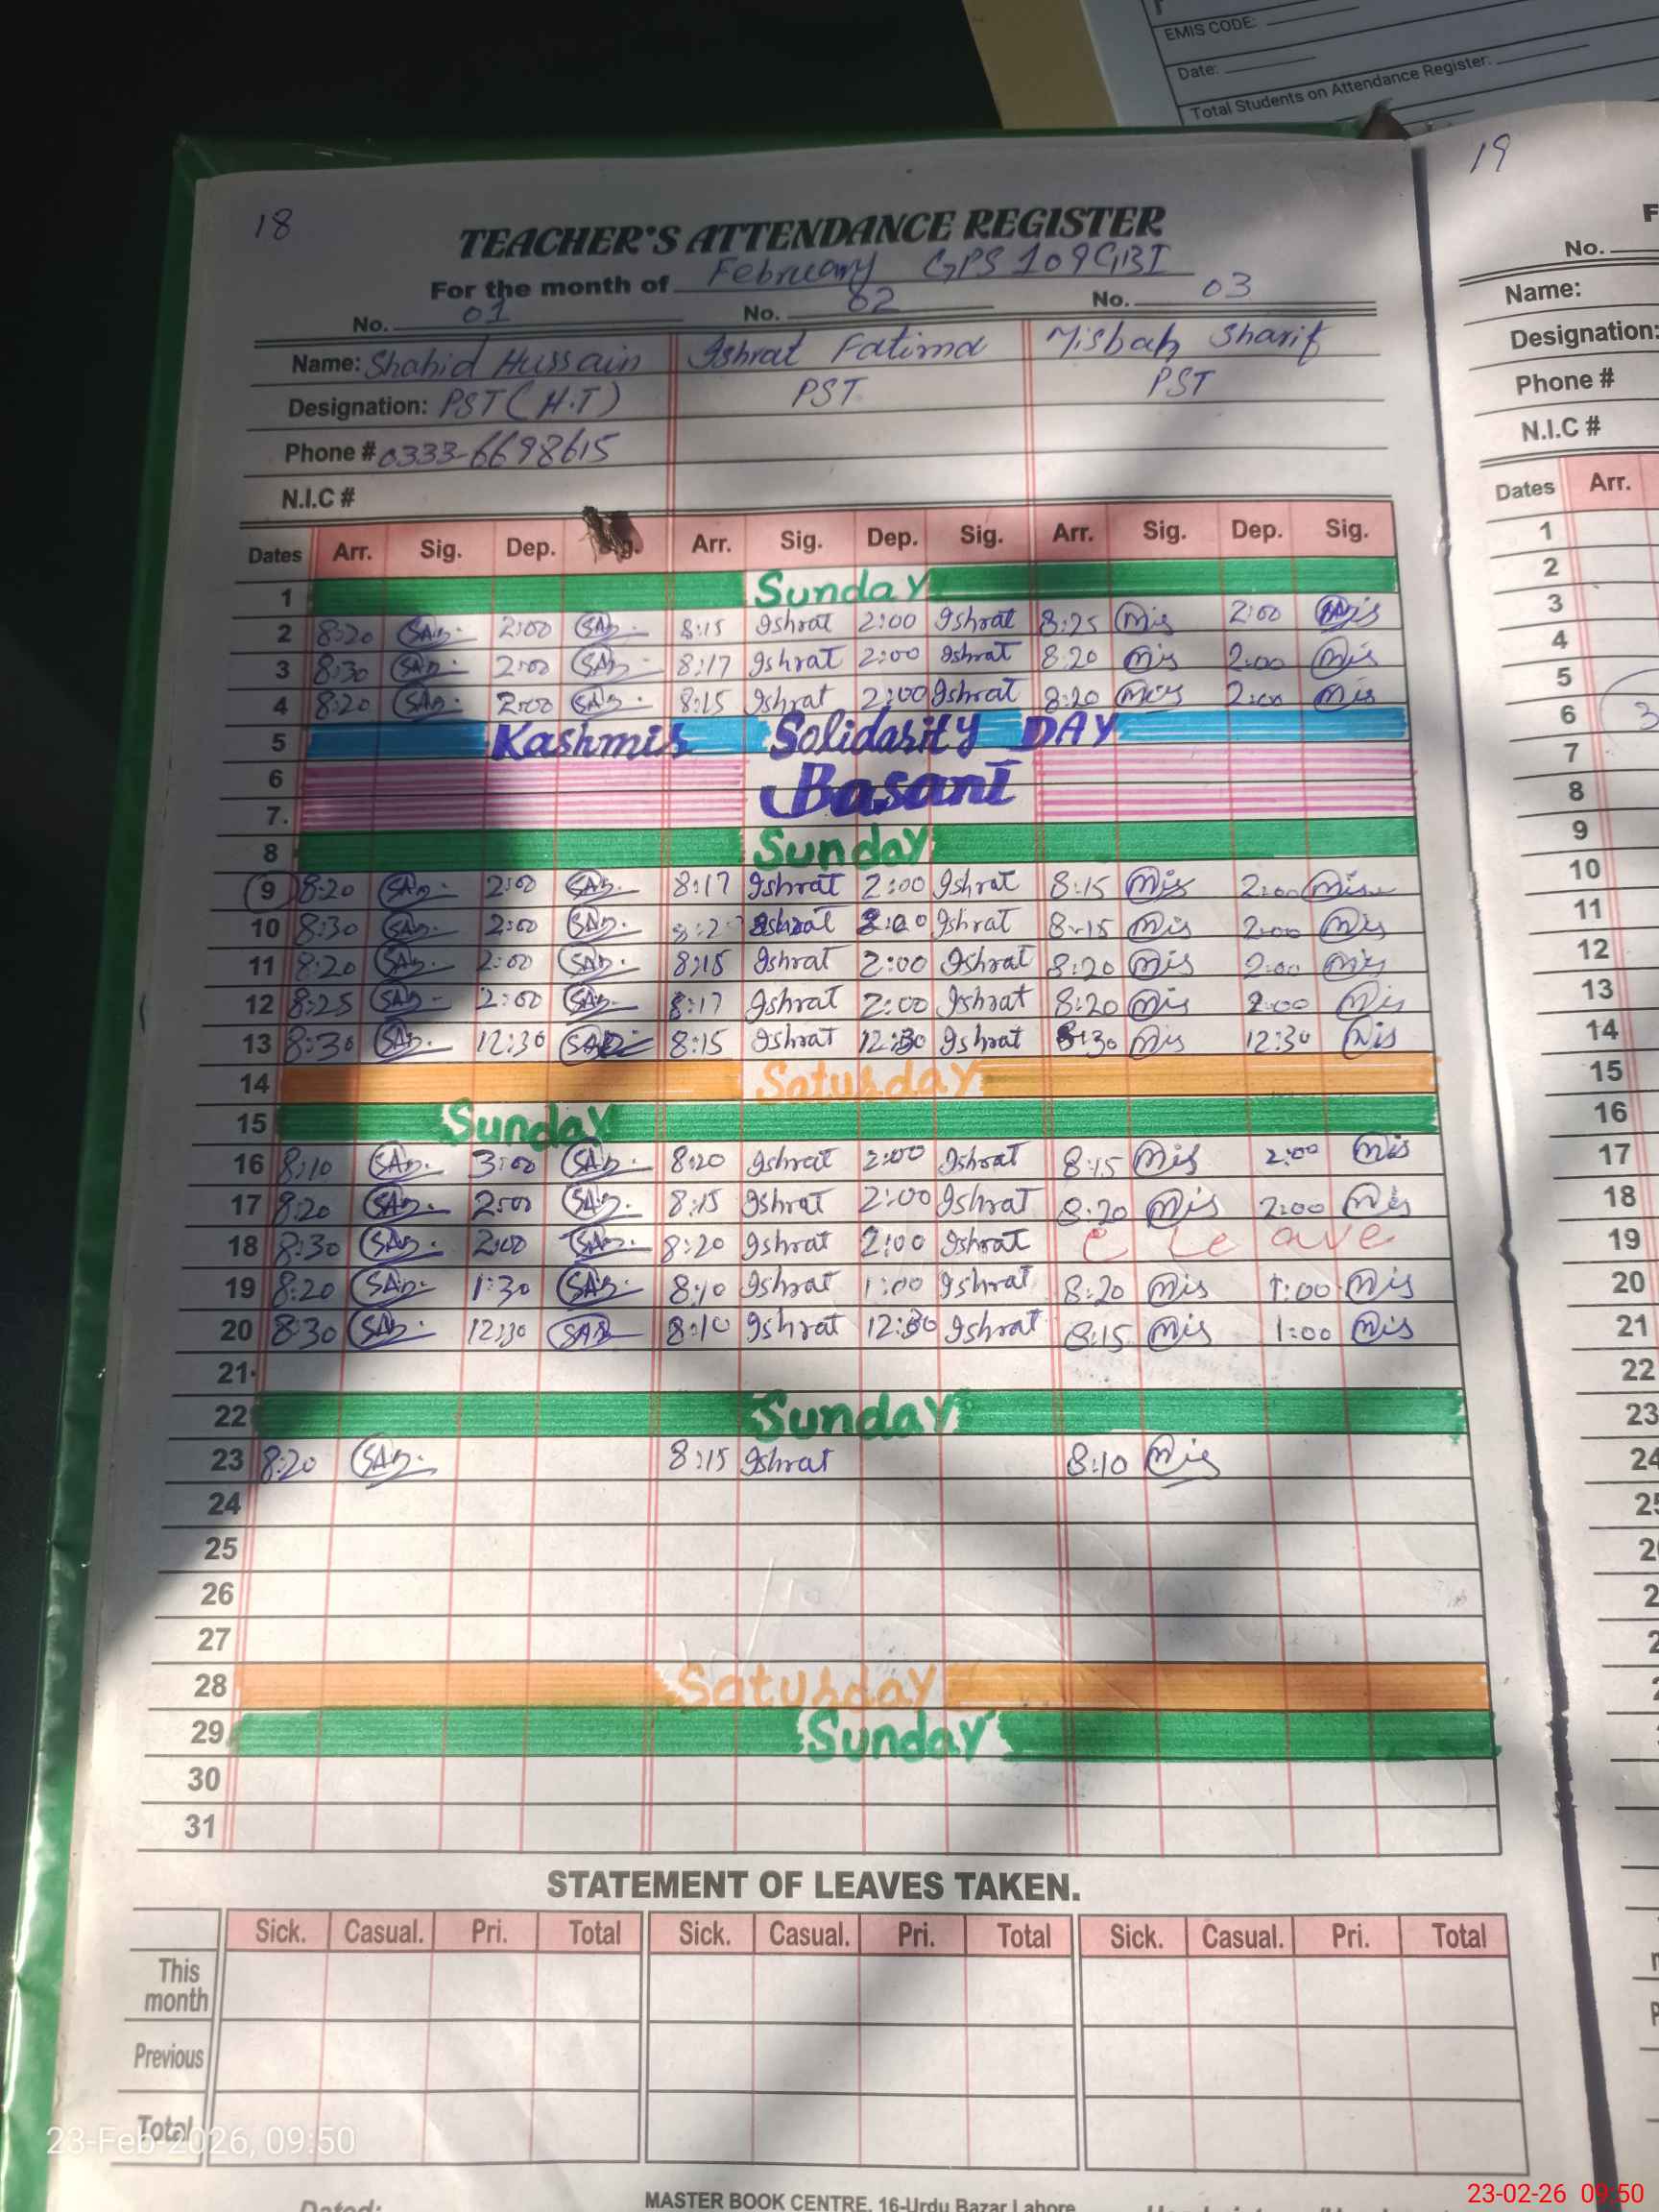 EMIS CODE:
Date:
Total Students on Attendance Register:
18
19
TEACHER'S ATTENDANCE REGISTER
For the month of February GPS 109GBI
No. 01 No. 02 No. 03
Name: Shahid Hussain Ishrat Fatima Misbah Sharif
Designation: PST (H.T) PST PST
Phone # 0333-6698615
N.I.C #
Dates Arr. Sig. Dep. Arr. Sig. Dep. Sig. Arr. Sig. Dep. Sig.
1 Sunday
2 8:20 SAb. 2:00 SAb. 8:15 Ishrat 2:00 Ishrat 8:25 Mis 2:00 Mis
3 8:30 SAb. 2:00 SAb. 8:17 Ishrat 2:00 Ishrat 8:20 Mis 2:00 Mis
4 8:20 SAb. 2:00 SAb. 8:15 Ishrat 2:00 Ishrat 8:20 Mis 2:00 Mis
5 Kashmir Solidarity DAY
6
Basant
7.
8 Sunday
9 8:20 SAb. 2:00 SAb. 8:17 Ishrat 2:00 Ishrat 8:15 Mis 2:00 Mis
10 8:30 SAb. 2:00 SAb. Ishrat 2:00 Ishrat 8:15 Mis 2:00 Mis
11 8:20 SAb. 2:00 SAb. 8:15 Ishrat 2:00 Ishrat 8:20 Mis 2:00 Mis
12 8:25 SAb. 2:00 SAb. 8:17 Ishrat 2:00 Ishrat 8:20 Mis 2:00 Mis
13 8:30 SAb. 12:30 8:15 Ishrat 12:30 Ishrat 8:30 Mis 12:30 Mis
14 Saturday
15 Sunday
16 8:10 SAb. 3:00 SAb. 8:20 Ishrat 2:00 Ishrat 8:15 Mis 2:00 Mis
17 8:20 SAb. 2:00 SAb. 8:15 Ishrat 2:00 Ishrat 8:20 Mis 2:00 Mis
18 8:30 SAb. 2:00 SAb. 8:20 Ishrat 2:00 Ishrat C Leave
19 8:20 SAb. 1:30 SAb. 8:10 Ishrat 1:00 Ishrat 8:20 Mis 1:00 Mis
20 8:30 SAb. 12:30 SAb 8:10 Ishrat 12:30 Ishrat 8:15 Mis 1:00 Mis
21.
22 Sunday
23 8:20 SAb. 8:15 Ishrat 8:10 Mis
24
25
26
27
28 Saturday
29 Sunday
30
31
STATEMENT OF LEAVES TAKEN.
Sick. Casual. Pri. Total Sick. Casual. Pri. Total Sick. Casual. Pri. Total
This month
Previous
Total
MASTER BOOK CENTRE, 16-Urdu Bazar Lahore
No.
Name:
Designation:
Phone #
N.I.C #
Dates Arr.
1
2
3
4
5
6
7
8
9
10
11
12
13
14
15
16
17
18
19
20
21
22
23
24
23-Feb-2026, 09:50
23-02-26 09:50